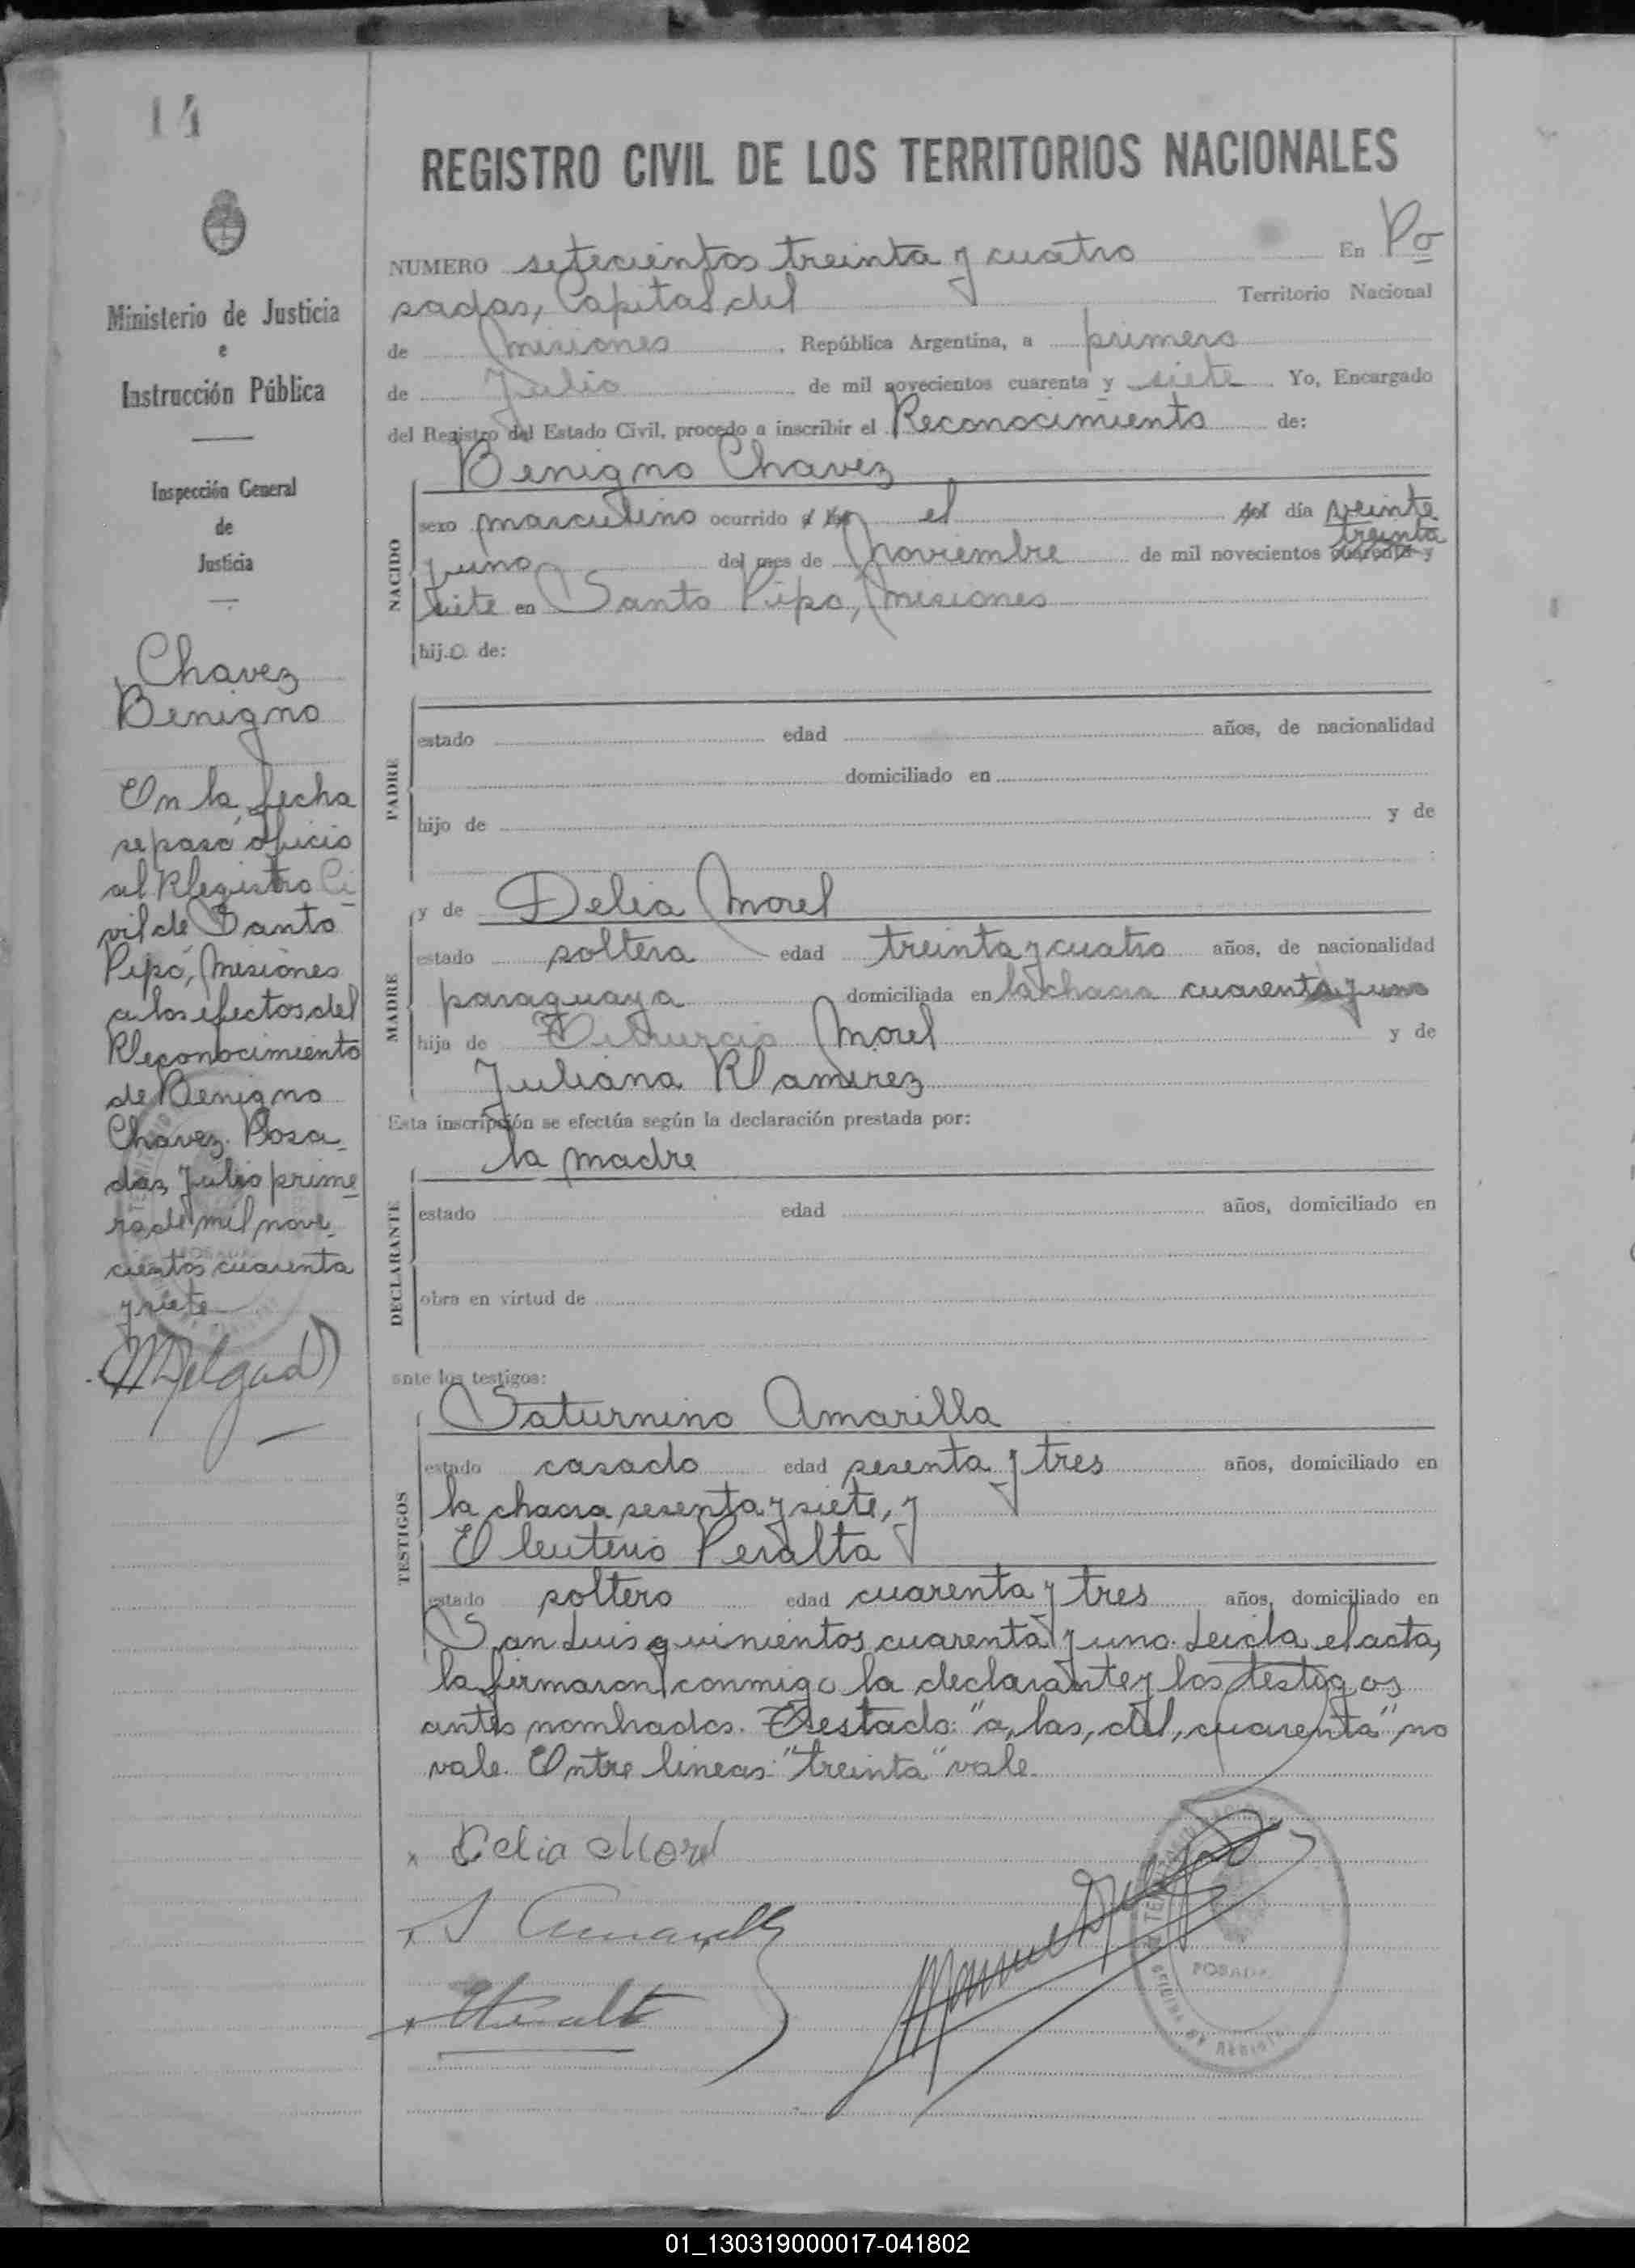 14
REGISTRO CIVIL DE LOS TERRITORIOS NACIONALES
Ministerio de Justicia
e
Instrucción Pública
Inspección General
de
Justicia
Chavez
Benigno
En la fecha
se pasó oficio
al Registro Ci
vil de Santo
Pipó, Misiones
a los efectos del
Reconocimiento
de Benigno
Chavez. Posa
das, Julio prime
ro de mil nove
cientos cuarenta
y siete
MDelgado
NUMERO setecientos treinta y cuatro En Po
sadas, Capital del Territorio Nacional
de Misiones, República Argentina, a primero
de Julio de mil novecientos cuarenta y siete Yo, Encargado
del Registro del Estado Civil, procedo a inscribir el Reconocimiento de:
Benigno Chavez
NACIDO
sexo masculino ocurrido a las el del día veinte
treinta
y uno del mes de Noviembre de mil novecientos cuarenta y
siete en Santo Pipo, Misiones
hijo de:
PADRE
estado edad años, de nacionalidad
domiciliado en
hijo de y de
MADRE
y de Delia Morel
estado soltera edad treinta y cuatro años, de nacionalidad
paraguaya domiciliada en la chacra cuarenta y uno
hija de Morel y de
Juliana Ramirez
Esta inscripción se efectúa según la declaración prestada por:
la madre
DECLARANTE
estado edad años, domiciliado en
obra en virtud de
ante los testigos:
TESTIGOS
Saturnino Amarilla
estado casado edad sesenta y tres años, domiciliado en
la chacra sesenta y siete, y
Eleuterio Peralta
estado soltero edad cuarenta y tres años, domiciliado en
San Luis quinientos cuarenta y uno. Leida el acta,
la firmaron conmigo la declarante y los testigos
antes nombrados. Testado: "a, las, del, cuarenta", no
vale. Entre lineas: "treinta" vale.
Delia Morel
S Amarilla
EPeralta
Manuel Delgado
POSADAS
01_130319000017-041802